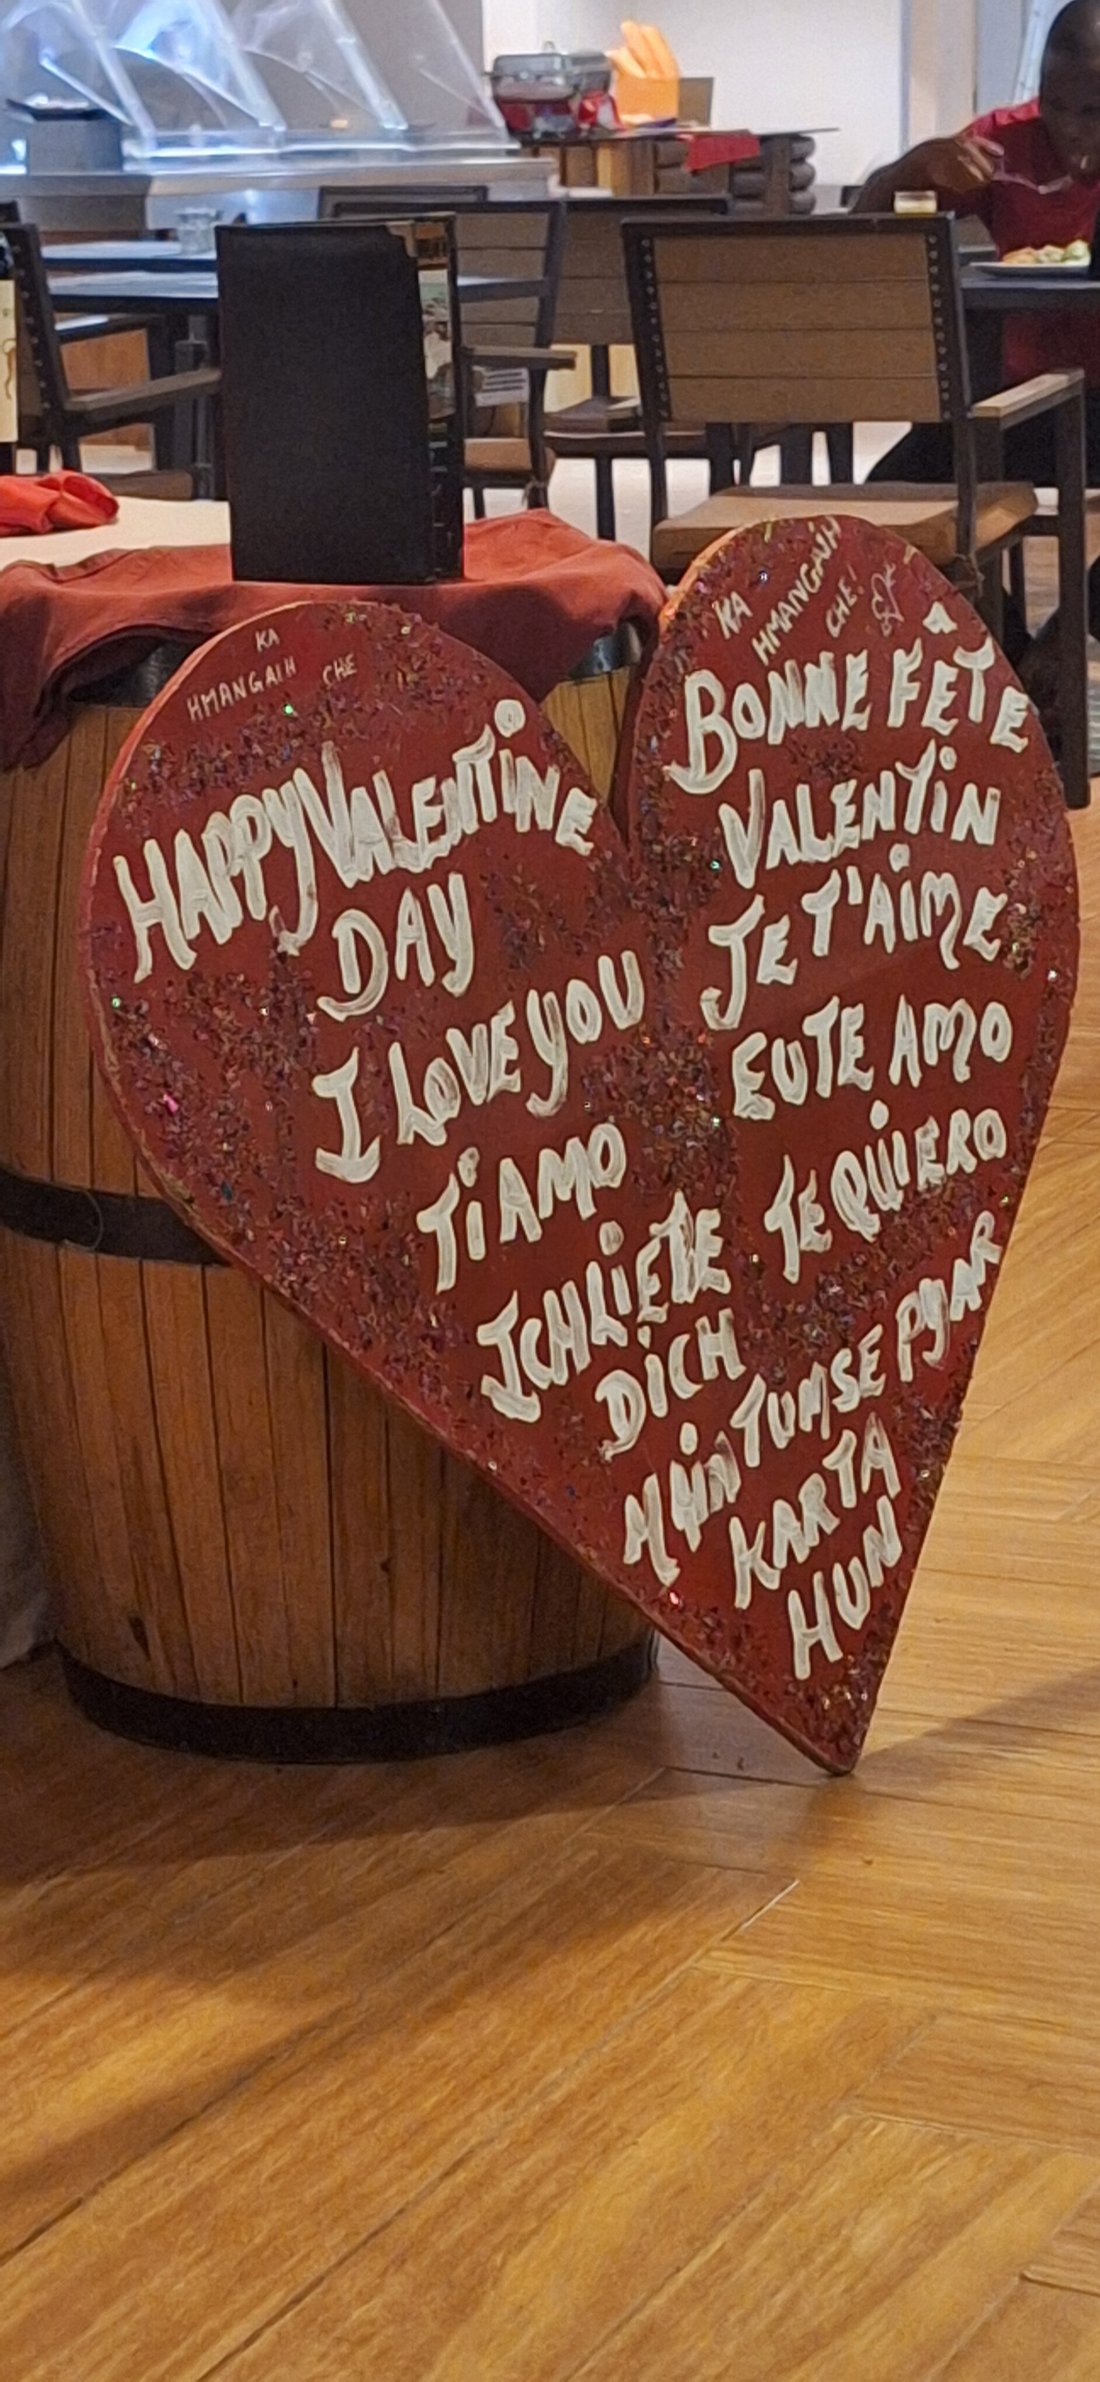 KA
HMANGAIH CHE
HAPPY VALENTINE
DAY
I LOVE YOU
TI AMO
ICH LIEBE
DICH
KA
HMANGAIH
CHE!
BONNE FÊTE
VALENTIN
JE T'AIME
EU TE AMO
TE QUIERO
MAIN TUMSE PYAR
KARTA
HUN